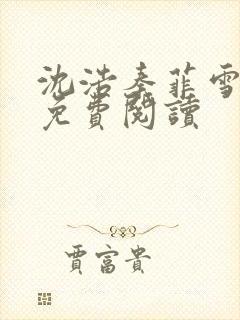 沈浩秦菲雪
免費閱讀
賈富貴